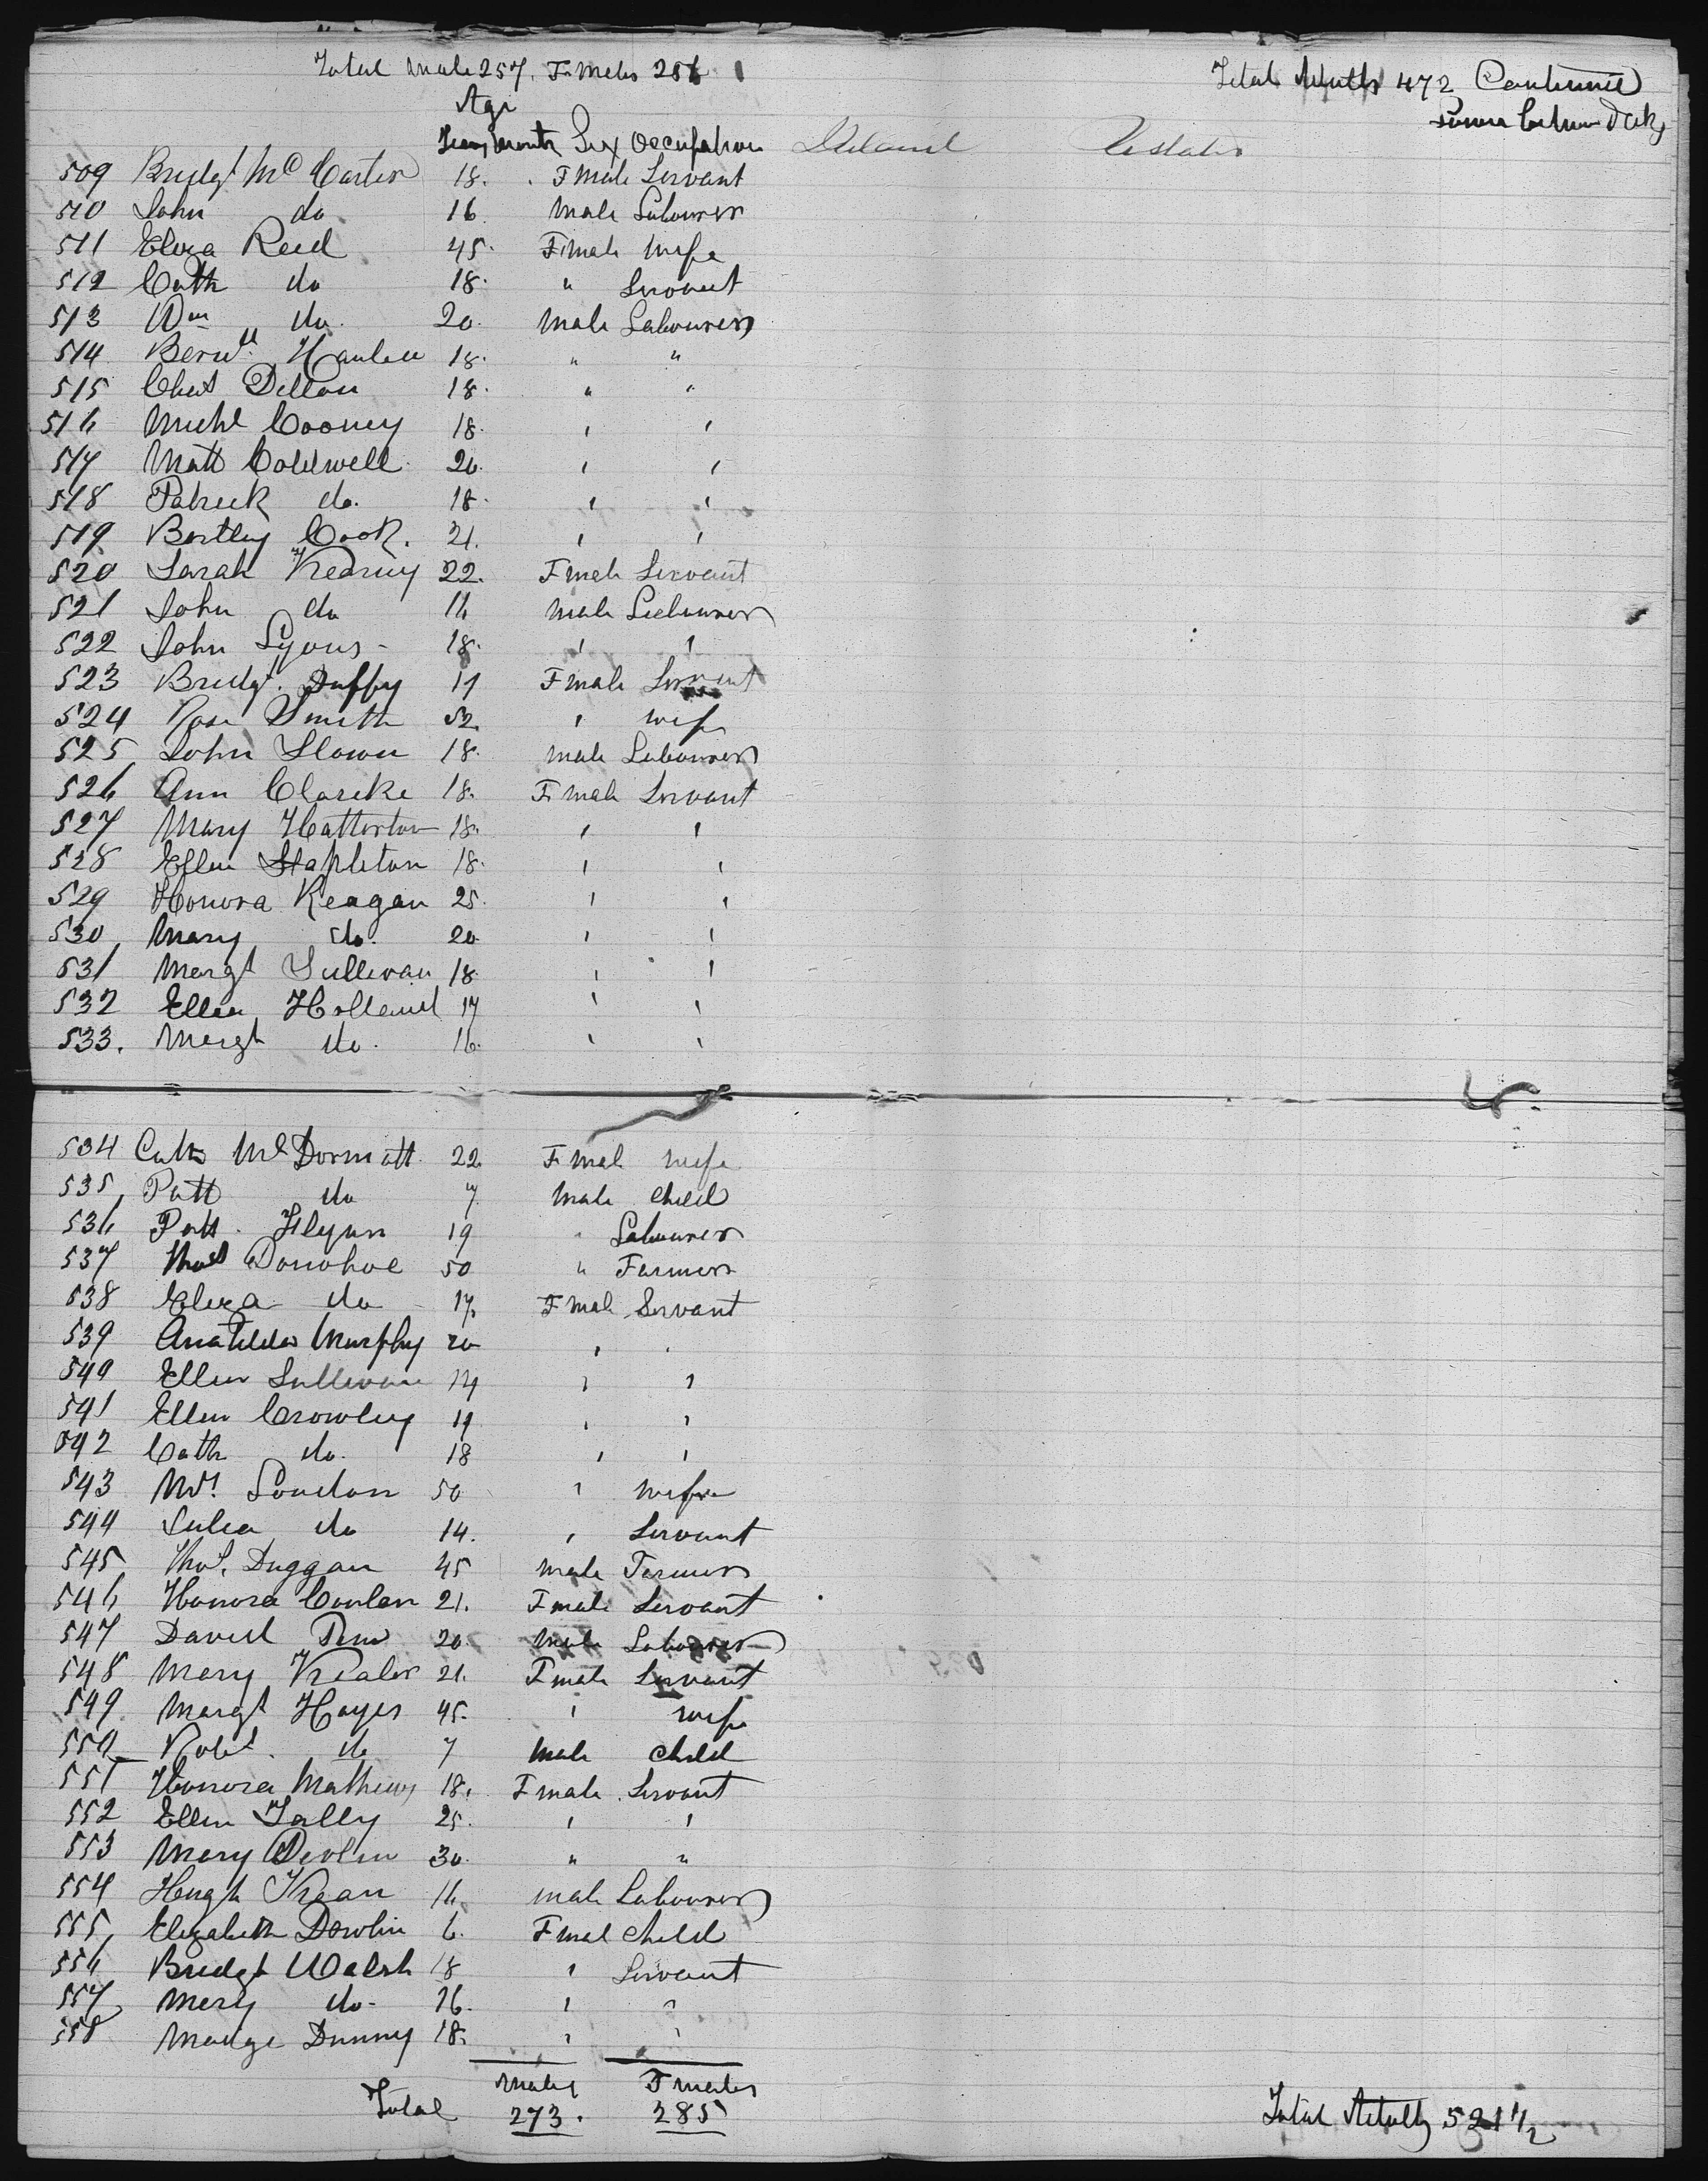 Total Male 257. Fmales 251
Total Adults 472 Continued
Age
Years Month Sex Occupation Ireland U States
509 Bridgt McCarten 18. Fmale Servant
510 John do 16 Male Labourer
511 Eliza Reid 45. Fmale Wife
512 Cath do 18. " Servant
513 Wm do. 20. Male Labourer
514 Bernd. Hanlen 18. " "
515 Chst Dillon 18. " "
516 Michl Cooney 18. " "
517 Matt Coldwell 20. " "
518 Patrick do. 18. " "
519 Bartley Cook. 21. " "
520 Sarah Kearny 22. Fmale Servant
521 John do 16 Male Labourer
522 John Lyons 18. " "
523 Bridgt. Duffy 19 Fmale Servant
524 Rose Smith 52 " Wife
525 John Slown 18. Male Labourer
526 Ann Clareke 18. Fmale Servant
527 Mary Hatterton 18. " "
528 Ellen Stapleton 18. " "
529 Honora Keagan 25. " "
530 Mary do. 20 " "
531 Margt Sullivan 18. " "
532 Ellen Holland 17 " "
533. Margt do. 16. " "
534 Cath McDormatt 22 Fmal Wife
535 Patt do 7 Male Child
536 Patt. Flynn 19 " Labourer
537 Thos Donohoe 50 " Farmer
538 Eliza do 17. Fmale Servant
539 Anatilda Murphy 20 " "
540 Ellen Sullivan 14 " "
541 Ellen Crowley 19 " "
542 Cath do. 18 " "
543 Mrs. London 50 " Wife
544 Julia do 14. " Servant
545 Thos. Duggan 45 Male Farmer
546 Honora Conlan 21. Fmale Servant
547 David 20. Male Labourer
548 Mary Kealer 21. Fmale Servant
549 Margt Hayes 45. " Wife
550 Robt. do 7 Male Child
551 Honora Mathews 18. Fmale Servant
552 Ellen Tally 25. " "
553 Mary Devlin 30. " "
554 Hugh Kean 16. Male Labourer
555 Elizabeth Dowlin 6. Fmal Child
556 Bridgt Walsh 18 " Servant
557 Mary do. 16. " "
558 Madge Dunny 18. " "
Males Fmales
Total 273. 285
Total Adults 521 1/2